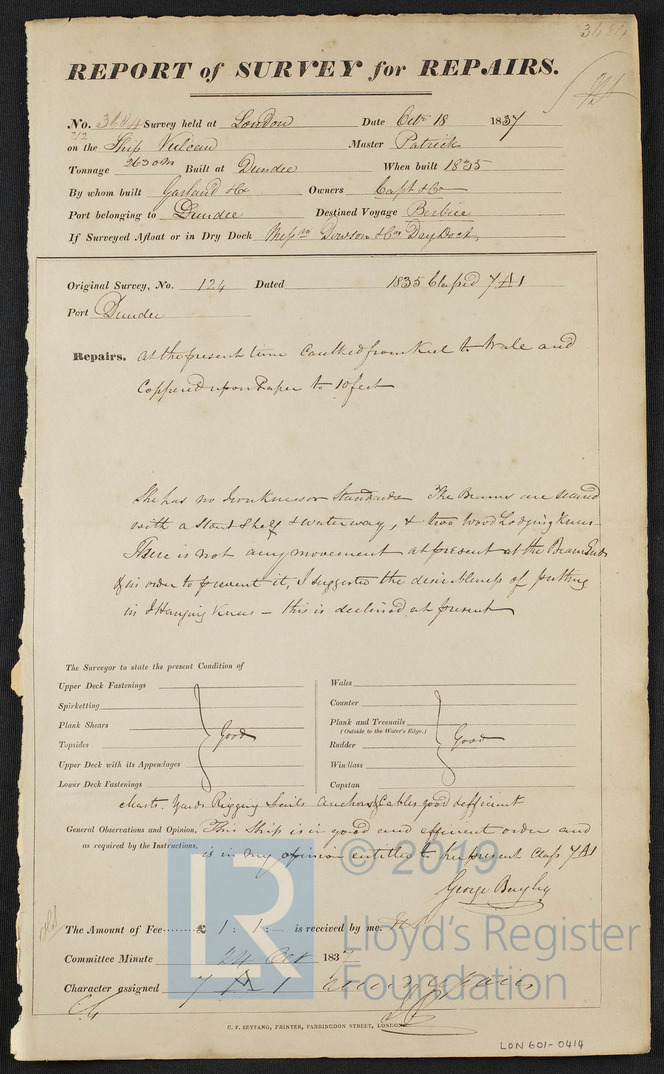 3684
REPORT of SURVEY for REPAIRS.
No. 3684 Survey held at London Date Octr 18 1837
on the Ship Vulcan Master Patrick
Tonnage 263 om Built at Dundee When built 1835
By whom built Garland & Co Owners Capt & Co
Port belonging to Dundee Destined Voyage Berbice
If Surveyed Afloat or in Dry Dock Messrs Dowson & Cos Dry Dock
Original Survey, No. 124 Dated 1835 Classed 7 A 1
Port Dundee
Repairs. at the present time Caulked from Keel to Wale and
Coppered upon Paper to 10 feet
She has no Iron Knees or Standards The Beams are secured
with a Stout Shelf & waterway, & two Wood Lodging Knees
There is not any movement at present at the Beam Ends
& in order to prevent it, I suggested the desirableness of putting
in I Hanging Knees – this is declined at present
The Surveyor to state the present Condition of
Upper Deck Fastenings
Spirketting
Plank Shears
Topsides
Upper Deck with its Appendages
Lower Deck Fastenings
Good
Wales
Counter
Plank and Treenails
(Outside to the Water's Edge.)
Rudder
Windlass
Capstan
Good
Masts. Yards Rigging Sails Anchors & Cables good & efficient
General Observations and Opinion, This Ship is in good and efficient order and
as required by the Instructions, is in my opinion entitled to her present Class 7 A 1
George Bayley
The Amount of Fee £ 1 : 1 : – is received by me.
Committee Minute 24 Oct 1837
Character assigned 7 A 1
C. F. SEYFANG, PRINTER, FARRINGDON STREET, LONDON
LON 601-0414
© 2019
LR
Lloyd's Register
Foundation